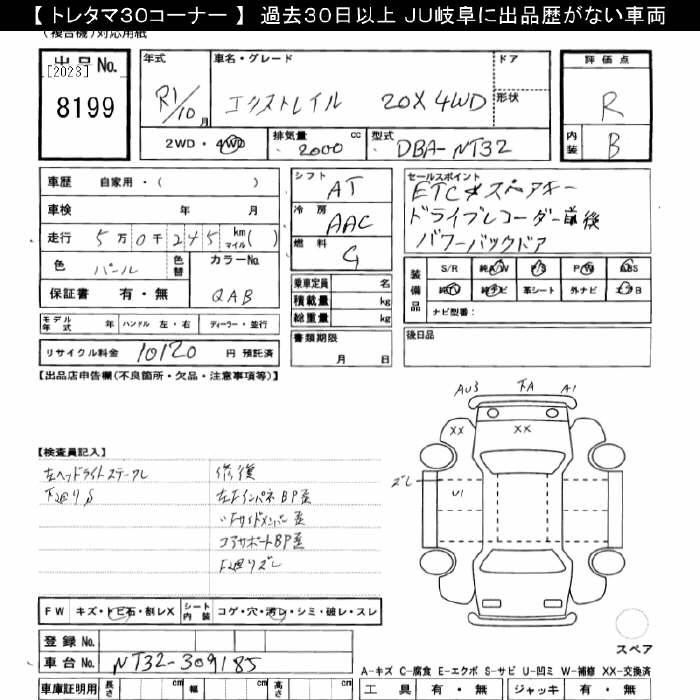 【 トレタマ30コーナー 】 過去30日以上 JU岐阜に出品歴がない車両
(複合機)対応用紙
出品No.
[2023]
8199
年式
R1/10月
車名・グレード
エクストレイル 20X 4WD
ドア
形状
評価点
R
内装 B
2WD・4WD
排気量 2000 cc
型式 DBA-NT32
車歴 自家用・( )
車検 年 月
走行 5万0千245 km マイル( )
色 パール 色替
カラーNo. QAB
保証書 有・無
シフト AT
冷房 AAC
燃料 G
乗車定員 名
積載量 kg
総重量 kg
書類期限
月 日
セールスポイント
ETC スペアキー
ドライブレコーダー前後
パワーバックドア
装備品
S/R 純A/W P/S P/W ABS
純TV 純ナビ 革シート 外ナビ エアB
ナビ型番:
後日品
モデル年式 年 ハンドル 左・右 ディーラー・並行
リサイクル料金 10120 円 預託済
【出品店申告欄(不良箇所・欠品・注意事項等)】
AU3 下A A1
XX XX
ズレ
U1
【検査員記入】
左ヘッドライトステークレ
下廻りS
修復
左Fインパネ BP歪
〃Fサイドメンバー歪
コアサポートBP歪
下廻りズレ
FW キズ・トビ石・割レX
シート内装 コゲ・穴・汚レ・シミ・破レ・スレ
登録No.
車台No. NT32-309185
車庫証明用 長さ cm 幅 cm 高さ cm
スペア
A-キズ C-腐食 E-エクボ S-サビ U-凹ミ W-補修 XX-交換済
工具 有・無 ジャッキ 有・無